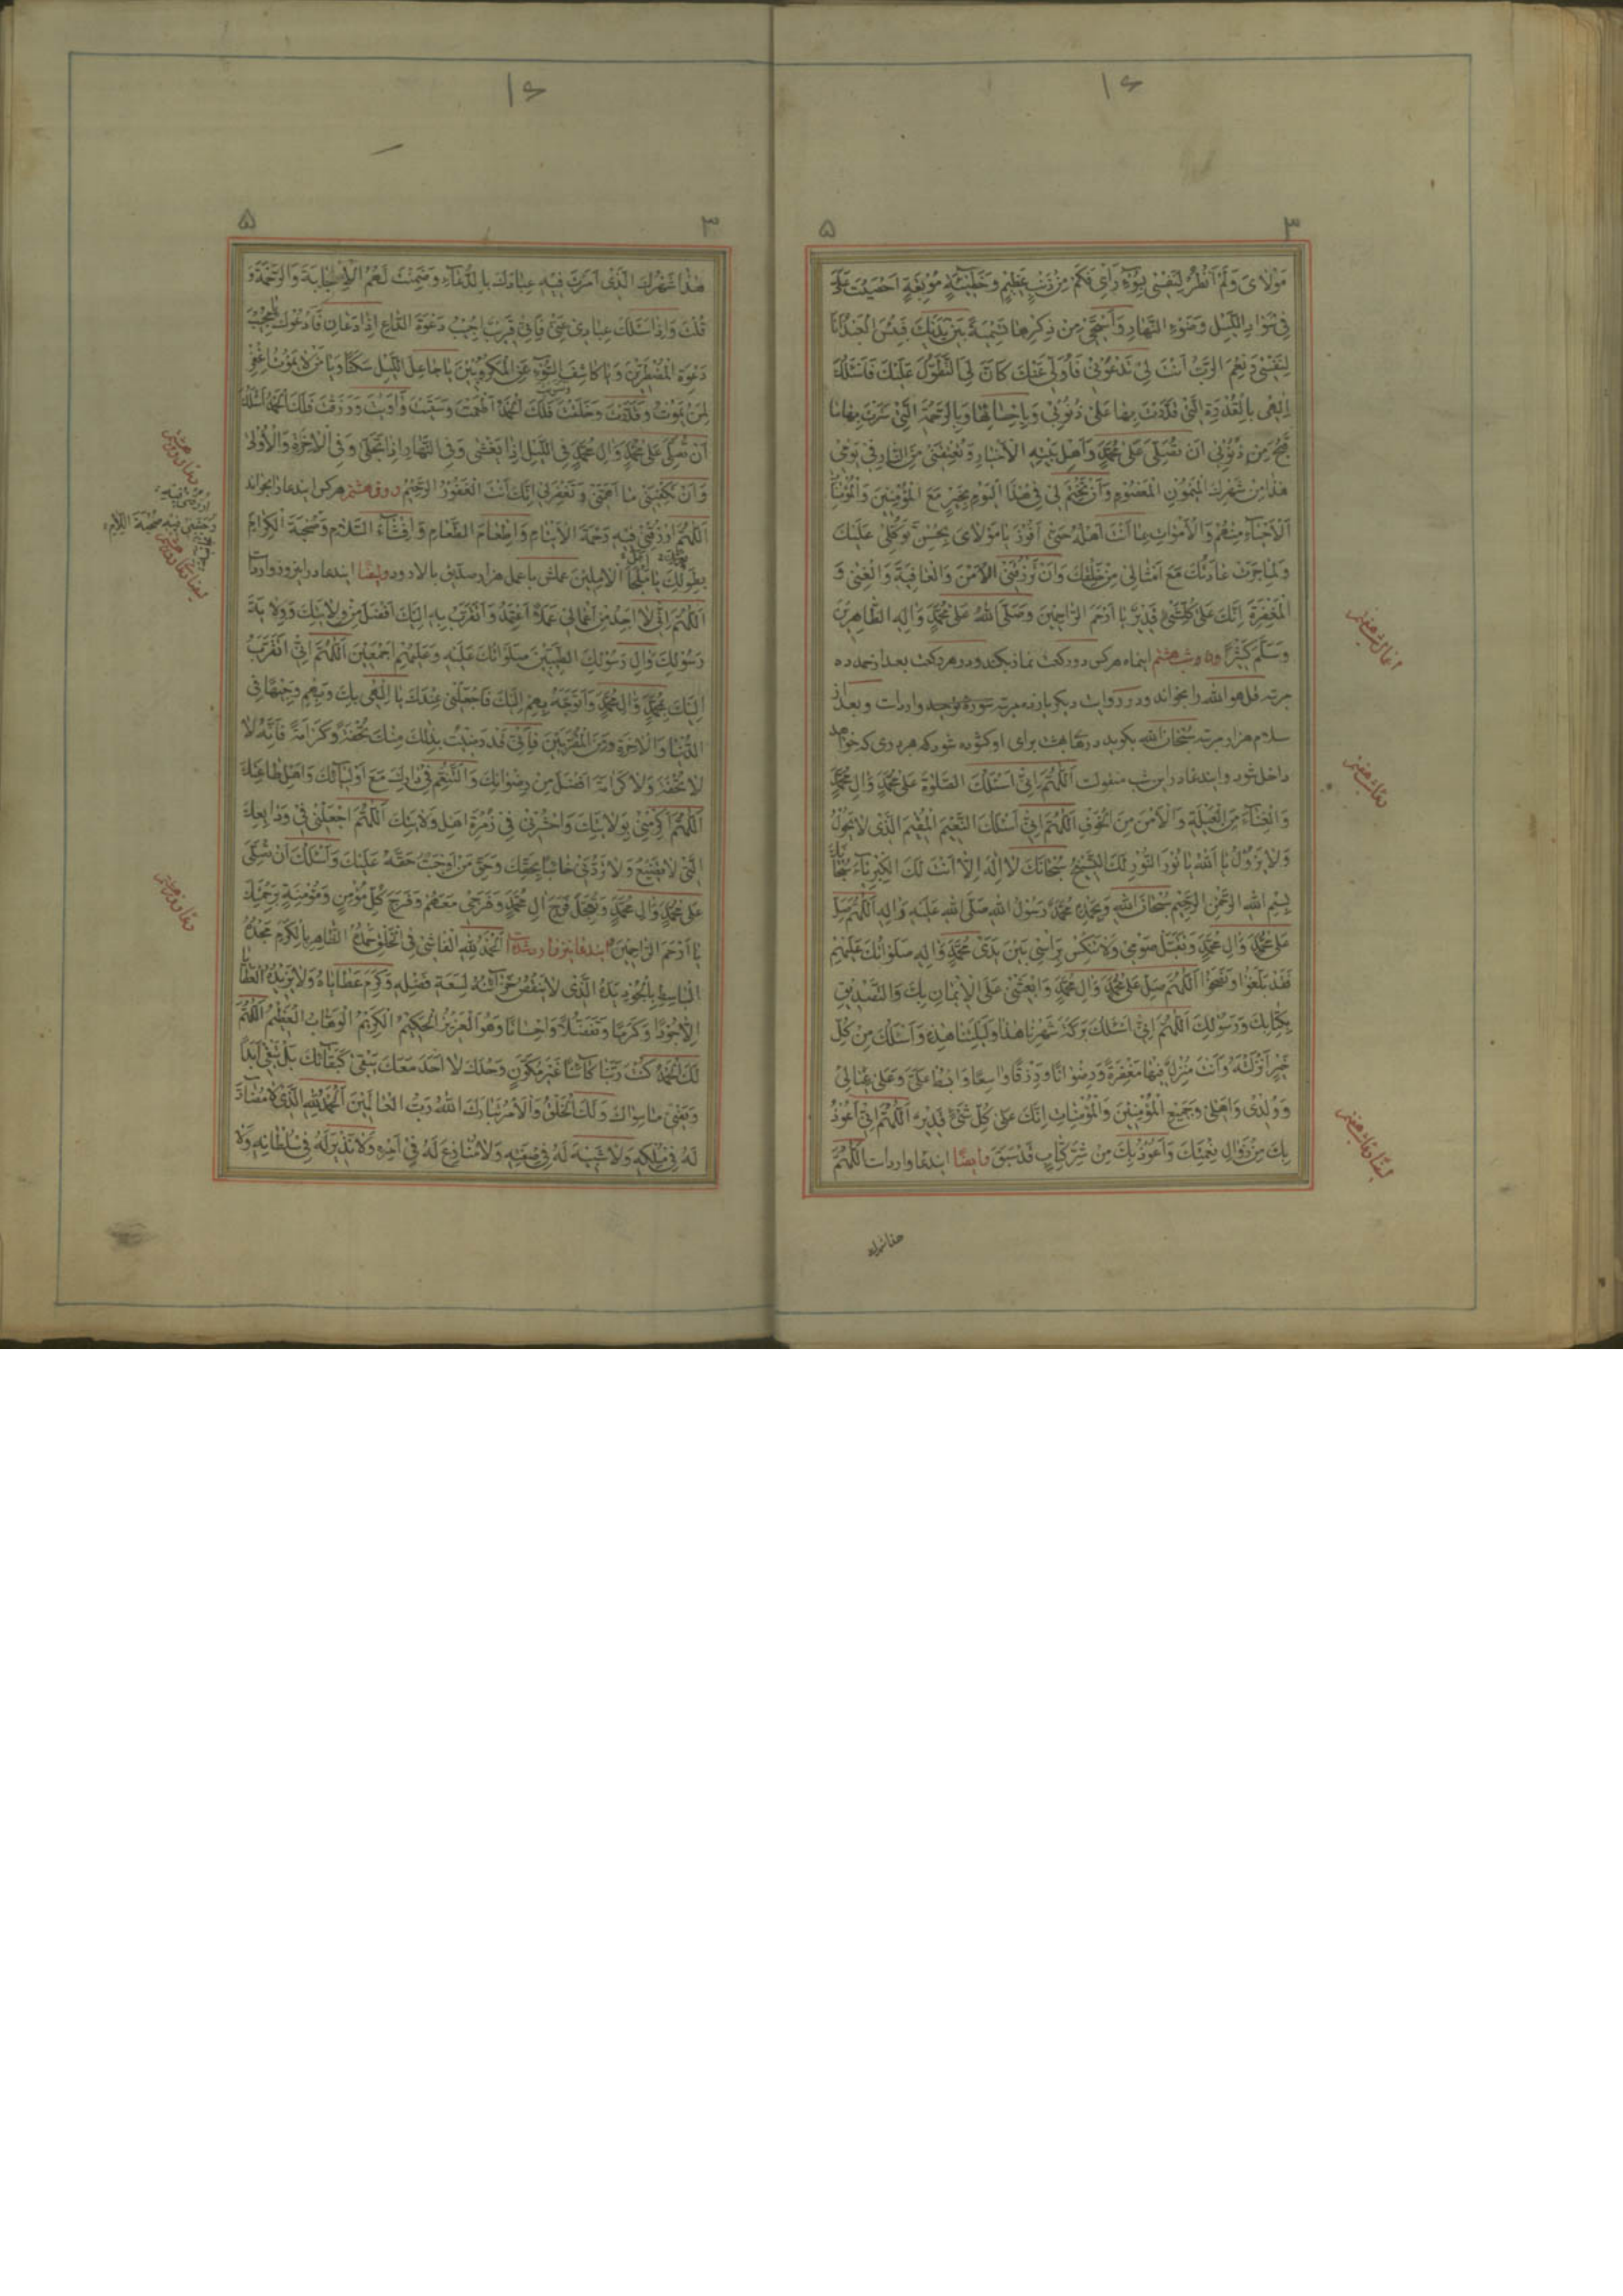 مَوْلَايَ وَلَمْ اَنْظُرْ لِنَفْسِي بِسُوءِ رَأْيِي فَكَمْ مِنْ ذَنْبٍ عَظِيمٍ وَخَطِيئَةٍ مُوبِقَةٍ اَحْصَيْتَ عَلَيَّ
فِي سَوَادِ اللَّيْلِ وَضَوْءِ النَّهَارِ وَاَسْتَحْيِي مِنْ ذِكْرِهَا بَيْنَ يَدَيْكَ فَبِئْسَ الْعَبْدُ اَنَا
لِنَفْسِي وَنِعْمَ الرَّبُّ اَنْتَ لِي تَدْعُونِي فَاُوَلِّي عَنْكَ كَانَ لِيَ التَّطَوُّلَ عَلَيْكَ فَاَسْئَلُكَ
اِلٰهِي بِالْقُدْرَةِ الَّتِي قَدَرْتَ بِهَا عَلَى ذُنُوبِي وَبِاِحْصَائِهَا وَبِالرَّحْمَةِ الَّتِي سَتَرْتَ بِهَا مَا
قَبُحَ مِنْ ذُنُوبِي اَنْ تُصَلِّيَ عَلَى مُحَمَّدٍ وَاَهْلِ بَيْتِهِ الْاَخْيَارِ وَتُعْتِقَنِي مِنَ النَّارِ فِي يَوْمِي
هٰذَا مِنْ شَهْرِكَ الْمَيْمُونِ وَاَنْ تَخْتِمَ لِي فِي هٰذَا الْيَوْمِ بِخَيْرٍ مَعَ الْمُؤْمِنِينَ وَالْمُؤْمِنَاتِ
اَلْاَحْيَاءِ مِنْهُمْ وَالْاَمْوَاتِ بِمَا اَنْتَ اَهْلُهُ حَتَّى اَفُوزَ يَا مَوْلَايَ بِحُسْنِ تَوَكُّلِي عَلَيْكَ
وَلِمَا جَرَتْ عَادَتُكَ مَعَ اَمْثَالِي مِنْ خَلْقِكَ وَاَنْ تَرْزُقَنِي الْاَمْنَ وَالْعَافِيَةَ وَالْغِنٰى وَ
الْمَغْفِرَةَ اِنَّكَ عَلَى كُلِّ شَيْءٍ قَدِيرٌ يَا اَرْحَمَ الرَّاحِمِينَ وَصَلَّى اللهُ عَلَى مُحَمَّدٍ وَآلِهِ الطَّاهِرِينَ
وَسَلَّمَ كَثِيرًا شب هشتم اینماه هرکس دو رکعت نماز بکند و در هر رکعت بعد از حمد ده
مرتبه قل هو الله را بخواند و در روایت دیگر یازده مرتبه سوره توحید وارداست و بعد از
سلام هزار مرتبه سُبْحَانَ الله بگوید درهای بهشت برای او گشوده شود که از هر دری که خواهد
داخل شود و ایندعا در این شب منقولست اَللّٰهُمَّ اِنِّي اَسْئَلُكَ الصَّلٰوةَ عَلَى مُحَمَّدٍ وَآلِ مُحَمَّدٍ
وَالْغَنَاءَ مِنَ الْعَيْلَةِ وَالْاَمْنَ مِنَ الْخَوْفِ اَللّٰهُمَّ اِنِّي اَسْئَلُكَ النَّعِيمَ الْمُقِيمَ الَّذِي لَا يَحُولُ
وَلَا يَزُولُ يَا اَللهُ يَا نُورَ النُّورِ لَكَ التَّسْبِيحُ سُبْحَانَكَ لَا اِلٰهَ اِلَّا اَنْتَ لَكَ الْكِبْرِيَاءُ سُبْحَانَكَ
بِسْمِ اللهِ الرَّحْمٰنِ الرَّحِيمِ سُبْحَانَ اللهِ وَبِحَمْدِهِ مُحَمَّدٌ رَسُولُ اللهِ صَلَّى اللهُ عَلَيْهِ وَآلِهِ اَللّٰهُمَّ صَلِّ
عَلَى مُحَمَّدٍ وَآلِ مُحَمَّدٍ وَتَقَبَّلْ صَوْمِي وَلَا تُنَكِّسْ بِرَأْسِي بَيْنَ يَدَيْ مُحَمَّدٍ وَآلِهِ صَلَوَاتُكَ عَلَيْهِمْ
فَقَدْ بَلَّغُوا وَنَصَحُوا اَللّٰهُمَّ صَلِّ عَلَى مُحَمَّدٍ وَآلِ مُحَمَّدٍ وَابْعَثْنِي عَلَى الْاِيمَانِ بِكَ وَالتَّصْدِيقِ
بِكِتَابِكَ وَرَسُولِكَ اَللّٰهُمَّ اِنِّي اَسْئَلُكَ بَرَكَةَ شَهْرِنَا هٰذَا وَلَيْلَتِنَا هٰذِهِ وَاَسْئَلُكَ مِنْ كُلِّ
خَيْرٍ اَنْزَلْتَهُ وَاَنْتَ مُنْزِلُهُ فِيهَا مَغْفِرَةً وَرِضْوَانًا وَرِزْقًا وَاسِعًا وَابْسُطْ عَلَيَّ وَعَلَى عِيَالِي
وَوُلْدِي وَاَهْلِي وَجَمِيعِ الْمُؤْمِنِينَ وَالْمُؤْمِنَاتِ اِنَّكَ عَلَى كُلِّ شَيْءٍ قَدِيرٌ اَللّٰهُمَّ اِنِّي اَعُوذُ
بِكَ مِنْ زَوَالِ نِعْمَتِكَ وَاَعُوذُ بِكَ مِنْ شَرِّ كِتَابٍ قَدْ سَبَقَ ایضًا ایندعا وارداست اَللّٰهُمَّ
هذا شهرك
هٰذَا شَهْرُكَ الَّذِي اَمَرْتَ فِيهِ عِبَادَكَ بِالدُّعَاءِ وَضَمِنْتَ لَهُمُ الْاِجَابَةَ وَالرَّحْمَةَ وَ
قُلْتَ وَاِذَا سَئَلَكَ عِبَادِي عَنِّي فَاِنِّي قَرِيبٌ اُجِيبُ دَعْوَةَ الدَّاعِ اِذَا دَعَانِ فَاَدْعُوكَ يَا مُجِيبَ
دَعْوَةِ الْمُضْطَرِّينَ وَيَا كَاشِفَ السُّوءِ عَنِ الْمَكْرُوبِينَ يَا جَاعِلَ اللَّيْلِ سَكَنًا وَيَا مَنْ لَا يَمُوتُ اغْفِرْ
لِمَنْ يَمُوتُ وَقَدَّرْتَ وَخَلَقْتَ فَلَكَ الْحَمْدُ اَطْعَمْتَ وَسَقَيْتَ وَآوَيْتَ وَرَزَقْتَ فَلَكَ الْحَمْدُ اَسْئَلُكَ
اَنْ تُصَلِّيَ عَلَى مُحَمَّدٍ وَآلِ مُحَمَّدٍ فِي اللَّيْلِ اِذَا يَغْشٰى وَفِي النَّهَارِ اِذَا تَجَلّٰى وَفِي الْاٰخِرَةِ وَالْاُولٰى
وَاَنْ تَكْفِيَنِي مَا اَهَمَّنِي وَتَغْفِرَ لِي اِنَّكَ اَنْتَ الْغَفُورُ الرَّحِيمُ روز هشتم هرکس ایندعا را بخواند
اَللّٰهُمَّ ارْزُقْنِي فِيهِ رَحْمَةَ الْاَيْتَامِ وَاِطْعَامَ الطَّعَامِ وَاِفْشَاءَ السَّلَامِ وَصُحْبَةَ الْكِرَامِ
بِطَوْلِكَ يَا مَلْجَأَ الْاٰمِلِينَ عملش با عمل هزار صدیق بالا رود وایضًا ایندعا در این روز وارداست
اَللّٰهُمَّ اِنِّي لَا اَجِدُ مِنْ اَعْمَالِي عَمَلًا اَعْتَمِدُ وَاَتَقَرَّبُ بِهِ اِلَيْكَ اَفْضَلَ مِنْ وِلَايَتِكَ وَوِلَايَةِ
رَسُولِكَ وَآلِ رَسُولِكَ الطَّيِّبِينَ صَلَوَاتُكَ عَلَيْهِ وَعَلَيْهِمْ اَجْمَعِينَ اَللّٰهُمَّ اِنِّي اَتَقَرَّبُ
اِلَيْكَ بِمُحَمَّدٍ وَآلِ مُحَمَّدٍ وَاَتَوَجَّهُ بِهِمْ اِلَيْكَ فَاجْعَلْنِي عِنْدَكَ يَا اِلٰهِي بِكَ وَبِهِمْ وَجِيهًا فِي
الدُّنْيَا وَالْاٰخِرَةِ وَمِنَ الْمُقَرَّبِينَ فَاِنِّي قَدْ رَضِيتُ بِذٰلِكَ مِنْكَ تُحْفَةً وَكَرَامَةً فَاِنَّهُ لَا
لَا تُحْفَةَ وَلَا كَرَامَةَ اَفْضَلَ مِنْ رِضْوَانِكَ وَالتَّنَعُّمِ فِي دَارِكَ مَعَ اَوْلِيَائِكَ وَاَهْلِ طَاعَتِكَ
اَللّٰهُمَّ اَكْرِمْنِي بِوِلَايَتِكَ وَاحْشُرْنِي فِي زُمْرَةِ اَهْلِ وِلَايَتِكَ اَللّٰهُمَّ اجْعَلْنِي فِي وَدَائِعِكَ
الَّتِي لَا تَضِيعُ وَلَا تَرُدَّنِي خَائِبًا بِحَقِّكَ وَحَقِّ مَنْ اَوْجَبْتَ حَقَّهُ عَلَيْكَ وَاَسْئَلُكَ اَنْ تُصَلِّيَ
عَلَى مُحَمَّدٍ وَآلِ مُحَمَّدٍ وَتُعَجِّلَ فَرَجَ آلِ مُحَمَّدٍ وَفَرَجِي مَعَهُمْ وَفَرَجَ كُلِّ مُؤْمِنٍ وَمُؤْمِنَةٍ بِرَحْمَتِكَ
يَا اَرْحَمَ الرَّاحِمِينَ ایندعا نیز وارد شده اَلْحَمْدُ لِلّٰهِ الْفَاشِي فِي الْخَلْقِ حَمْدُهُ الظَّاهِرِ بِالْكَرَمِ مَجْدُهُ
الْبَاسِطِ بِالْجُودِ يَدَهُ الَّذِي لَا يَنْقُصُ خَزَائِنُهُ لِسَعَةِ فَضْلِهِ وَكَرَمِ عَطَايَاهُ وَلَا يَزِيدُهُ الْعَطَايَا
اِلَّا جُودًا وَكَرَمًا وَتَفَضُّلًا وَاِحْسَانًا وَهُوَ الْعَزِيزُ الْحَكِيمُ الْكَرِيمُ الْوَهَّابُ الْعَظِيمُ اَللّٰهُمَّ
لَكَ الْحَمْدُ كُنْتَ رَبَّنَا كَائِنًا غَيْرَ مُكَوَّنٍ وَحْدَكَ لَا اَحَدَ مَعَكَ يَبْقٰى كَبَقَائِكَ بَلْ تَبْقٰى اَبَدًا
وَيَفْنٰى مَا سِوَاكَ وَلَكَ الْخَلْقُ وَالْاَمْرُ تَبَارَكَ اللهُ رَبُّ الْعَالَمِينَ اَلْحَمْدُ لِلّٰهِ الَّذِي لَا مُضَادَّ
لَهُ فِي مُلْكِهِ وَلَا شَبِيهَ لَهُ فِي صِفَتِهِ وَلَا مُنَازِعَ لَهُ فِي اَمْرِهِ وَلَا نَذِيرَ لَهُ فِي سُلْطَانِهِ وَلَا